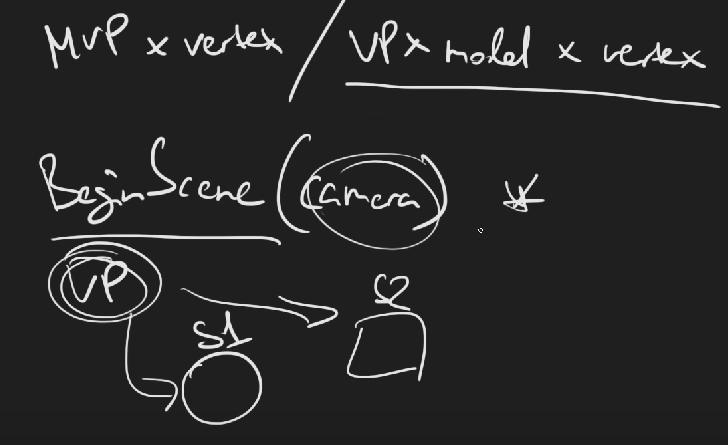 MVP x vertex / VP x model x vertex
BeginScene (camera) *
VP
S1
S2